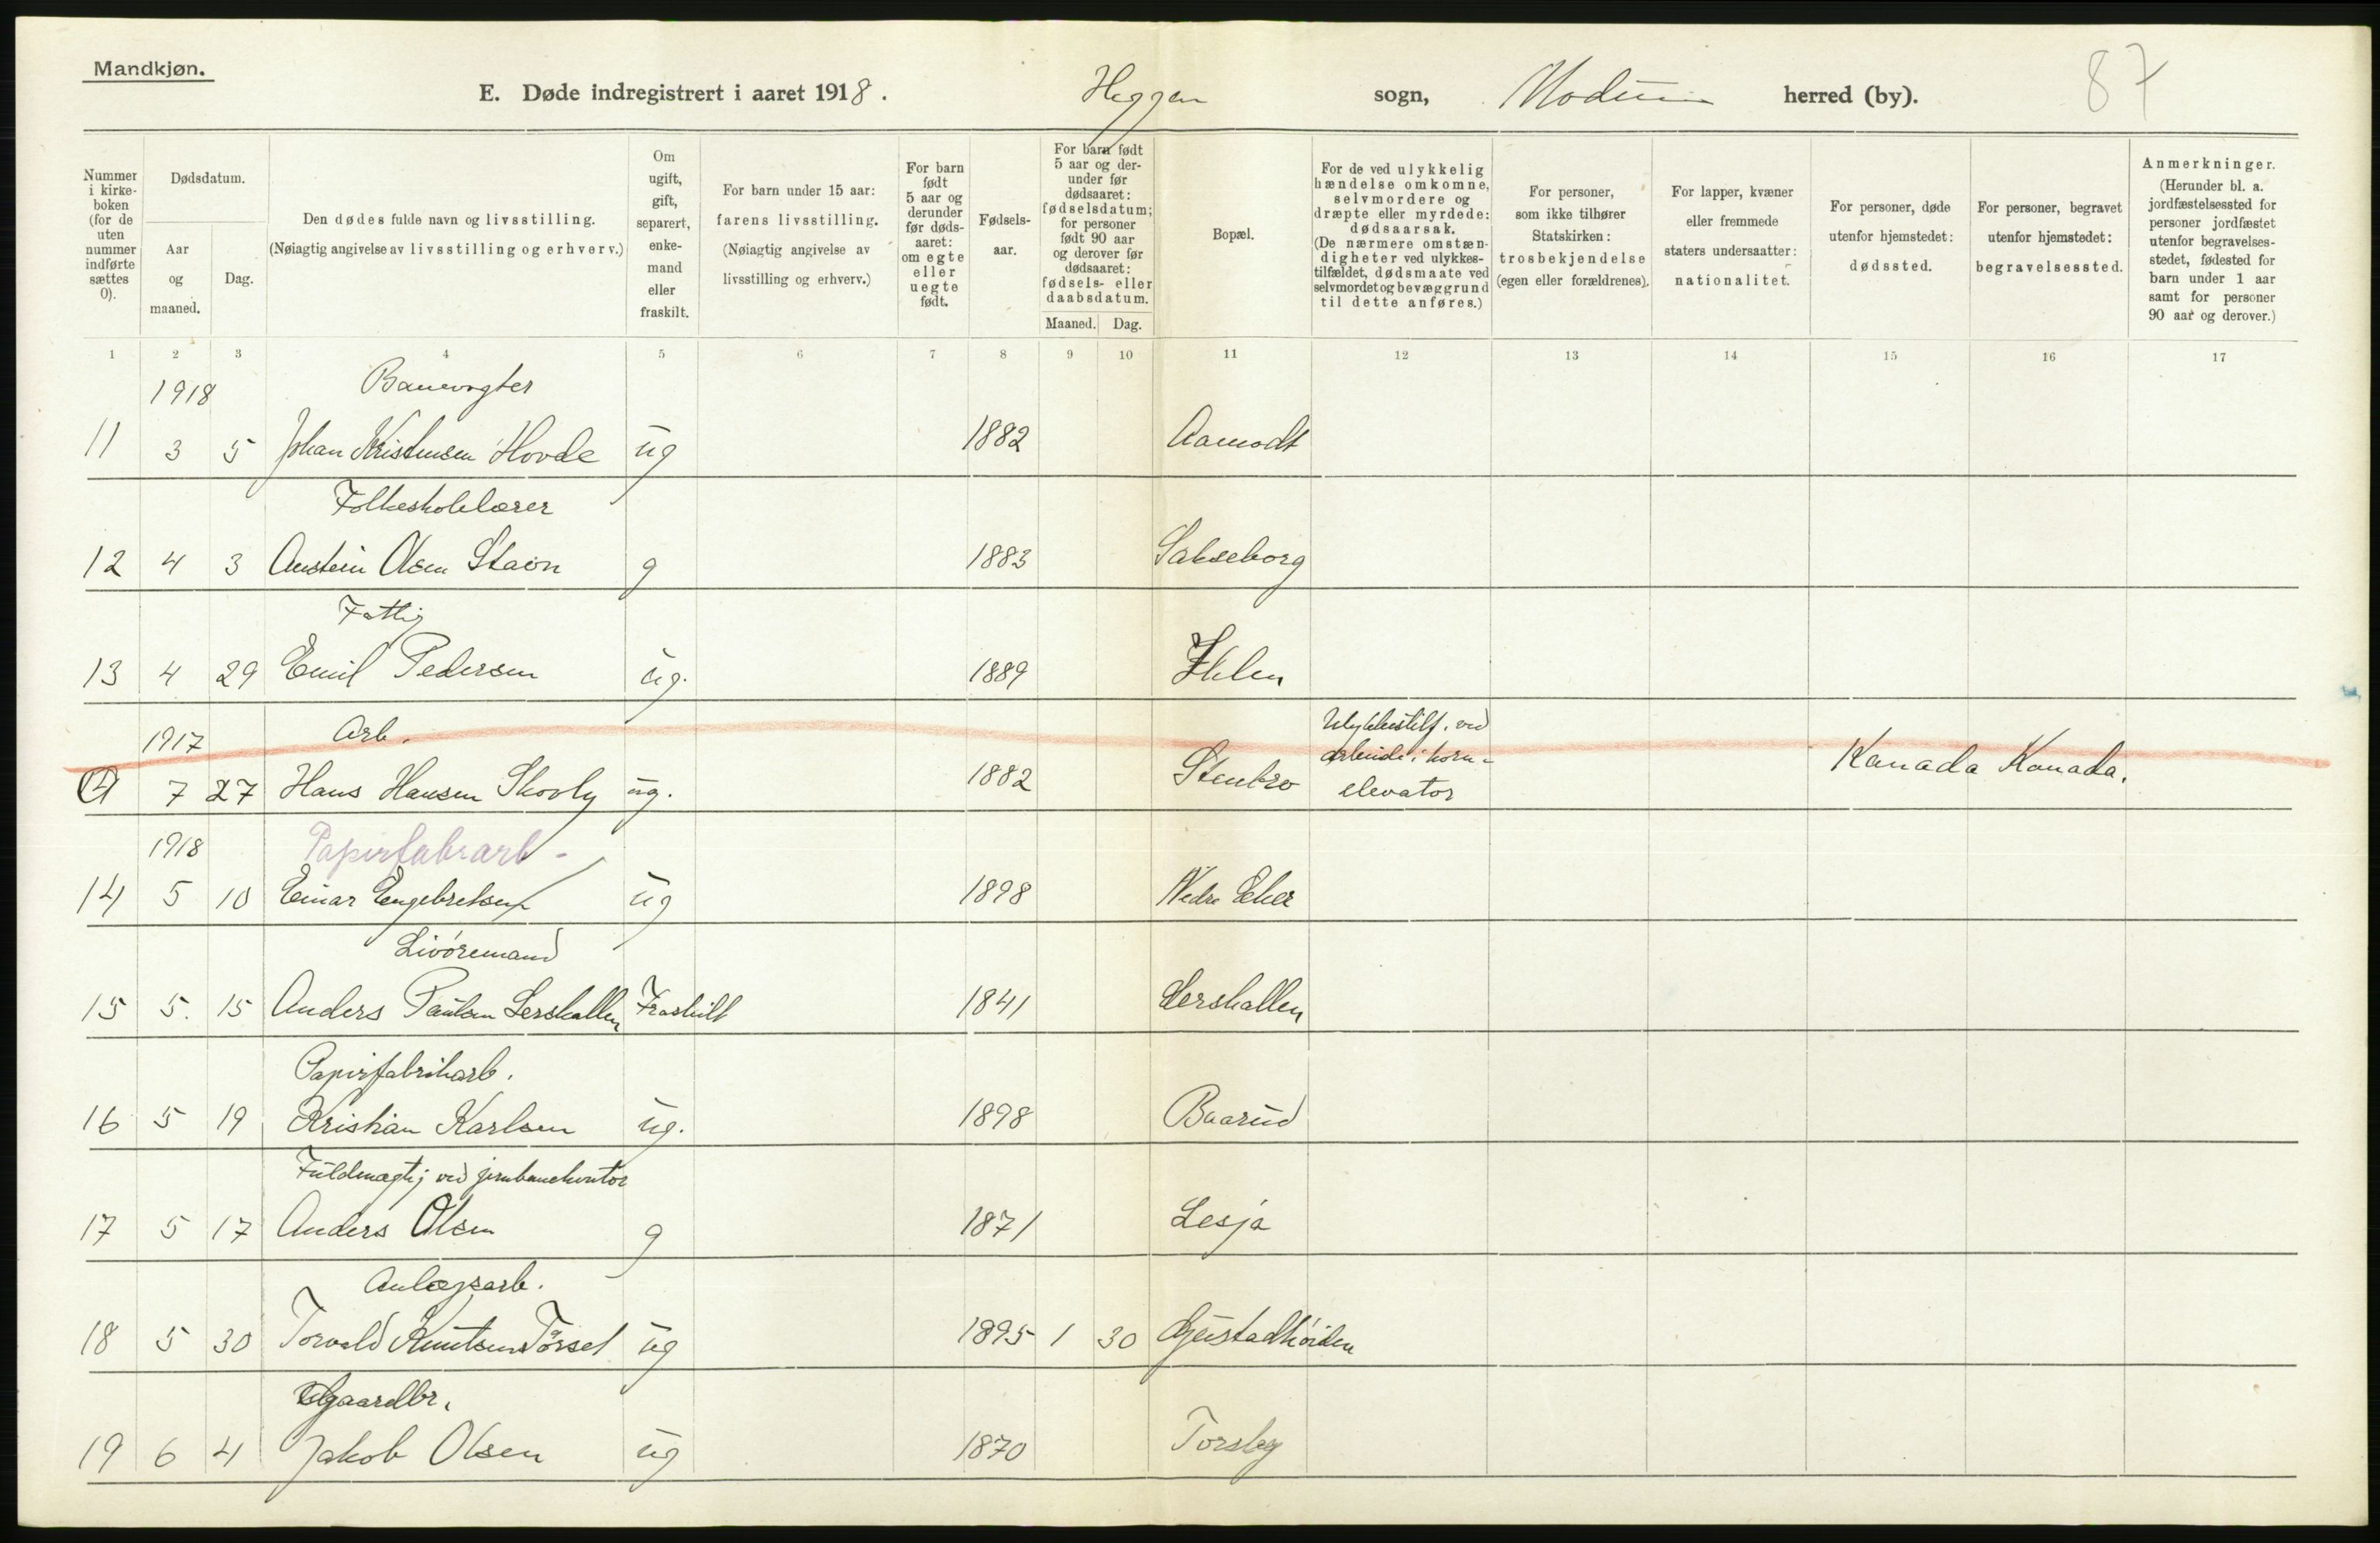 Mandkjøn.
E. Døde indregistrert i aaret 1918. Heggen sogn, Modum herred (by). 87
Nummer i kirkeboken (for de uten nummer indførte sættes 0).
Dødsdatum.
Aar og maaned.
Dag.
Den dødes fulde navn og livsstilling.
(Nøiagtig angivelse av livsstilling og erhverv.)
Om ugift, gift, separert, enkemand eller fraskilt.
For barn under 15 aar: farens livsstilling.
(Nøiagtig angivelse av livsstilling og erhverv.)
For barn født 5 aar og derunder før dødsaaret: om egte eller uegte født.
Fødselsaar.
For barn født 5 aar og derunder før dødsaaret: fødselsdatum; for personer født 90 aar og derover før dødsaaret: fødsels- eller daabsdatum.
Maaned. Dag.
Bopæl.
For de ved ulykkelig hændelse omkomne, selvmordere og dræpte eller myrdede: dødsaarsak.
(De nærmere omstændigheter ved ulykkestilfældet, dødsmaate ved selvmordet og bevæggrund til dette anføres.)
For personer, som ikke tilhører Statskirken: trosbekjendelse (egen eller forældrenes).
For lapper, kvæner eller fremmede staters undersaatter: nationalitet.
For personer, døde utenfor hjemstedet: dødssted.
For personer, begravet utenfor hjemstedet: begravelsessted.
Anmerkninger.
(Herunder bl. a. jordfæstelsessted for personer jordfæstet utenfor begravelsesstedet, fødested for barn under 1 aar samt for personer 90 aar og derover.)
1 2 3 4 5 6 7 8 9 10 11 12 13 14 15 16 17
1918 Banevogter
11 3 5 Johan Kristensen Hovde ug 1882 Aamodt
Folkeskolelærer
12 4 3 Austein Olsen Støvn g 1883 Sakseborg
Fattig
13 4 29 Emil Pedersen ug. 1889 Ihlen
1917 Arb. Ulykkestilf. ved
arbeide i korn-
7 27 Hans Hansen Skovly ug. 1882 Stenbro elevator Kanada Kanada.
1918 Papirfabr.arb -
14 5 10 Einar Engebretsen ug 1898 Nedre Eker
Livøremand
15 5. 15 Anders Paulsen Lerskallen Fraskilt 1841 Lerskallen
Papirfabrikarb.
16 5 19 Kristian Karlsen ug. 1898 Baarud
Fuldmægtig ved jernbanekontor
17 5 17 Anders Olsen g 1871 Lesja
Anlægsarb.
18 5 30 Torvald Knutsen Tørset ug 1895 1 30 Gjeistadhøiden
Gaardbr.
19 6 4 Jakob Olsen ug 1870 Torsby